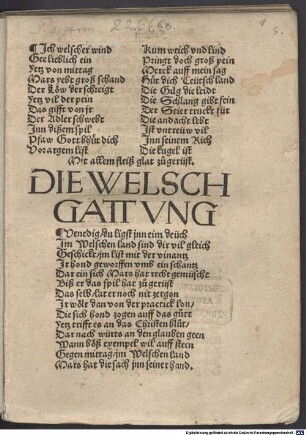 Ich welscher wind
Gee lieblich ein
Jetz von mittag
Mars yebt groß schand
Der Löw der schreigt
Jetz vil der pein
Das gifft von jr
Der Adler schwebt
Inn dißem spil
Pfaw Gott bhüt dich
Vor argem list
Kum weich vnd lind
Pringt doch groß pein
Merck auff mein sag
Hüt dich Teütsch land
Die Gilg die leidt
Die Schlang gibt sein
Der Stier truckt für
Die andacht lebt
Ist vntreüw vil
Inn seinem Rich
Die kugel ist
Mit allem fleiß glat zůgerüst.
DIE WELSCH
GATTVNG
Venedig/du ligst jnn eim deüch
Im Welschen land sind dir vil gleich
Geschickt/jm list mit der vinantz
Ir hond geworffen vmb ein schantz
Dar ein sich Mars hat recht gemüscht
Biß er das spil hat zů gerüst
Das selb/lat er noch nit zergon
Ir wölt dan von der practick lon/
Die sich hond zogen auff das gůrt
Jetz trifft es an das Christen blůt/
Dar nach würts an den glauben geen
Wann böß exempel wil auff steen
Gegen mittag/jm Welschen land
Mars hat die sach jnn seiner hand.